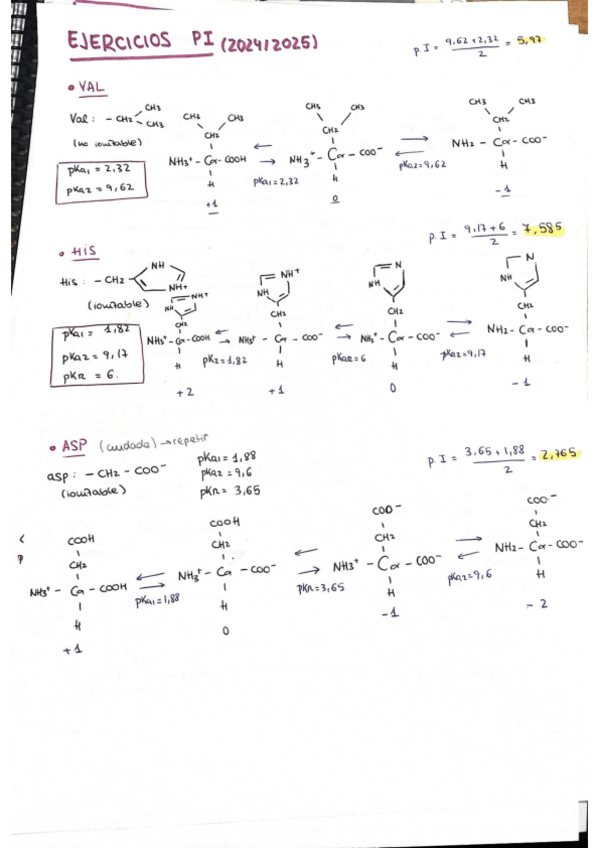 EJERCICIOS PI (2024/2025)
p.I = 9,62 + 2,32 / 2 = 5,97
• VAL
Val: - CH2 CH3 CH3
(no ionizable)
pKa1 = 2,32
pKa2 = 9,62
CH3 CH3
CH2
NH3+ - Cα - COOH
H
+1
pKa1 = 2,32
CH3 CH3
CH2
NH3+ - Cα - COO-
H
0
pKa2 = 9,62
CH3 CH3
CH2
NH2 - Cα - COO-
H
-1
p.I = 9,17 + 6 / 2 = 7,585
• HIS
His: - CH2 NH NH+
(ionizable)
pKa1 = 1,82
pKa2 = 9,17
pKR = 6.
NH NH+
CH2
NH3+ - Cα - COOH
H
+2
pK2 = 1,82
NH NH+
CH2
NH3+ - Cα - COO-
H
+1
pKaR = 6
N NH
CH2
NH3+ - Cα - COO-
H
0
pKa2 = 9,17
N NH
CH2
NH2 - Cα - COO-
H
-1
• ASP (cuidado) → repetir
asp: - CH2 - COO-
(ionizable)
pKa1 = 1,88
pKa2 = 9,6
pKR = 3,65
p.I = 3,65 + 1,88 / 2 = 2,765
COOH
CH2
NH3+ - Cα - COOH
H
+1
pKa1 = 1,88
COOH
CH2
NH3+ - Cα - COO-
H
0
pKR = 3,65
COO-
CH2
NH3+ - Cα - COO-
H
-1
pKa2 = 9,6
COO-
CH2
NH2 - Cα - COO-
H
-2